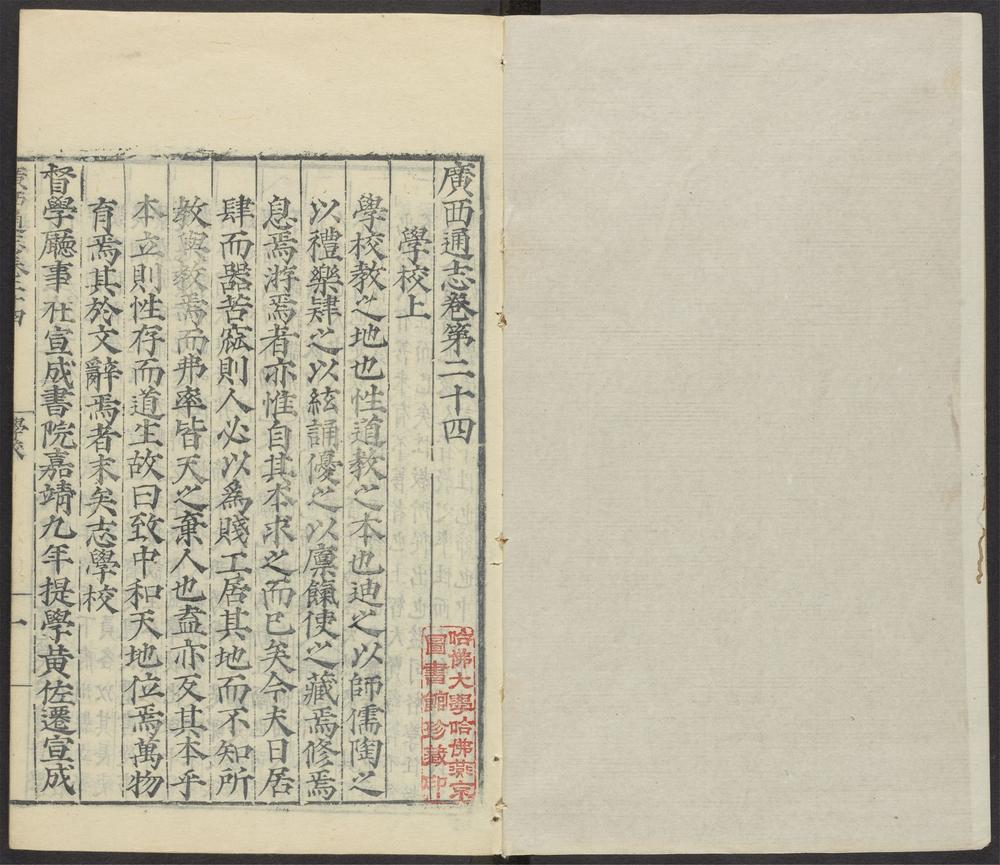 廣西通志卷第二十四
學校上
學校教之地也性道教之本也迪之以師儒陶之
以禮樂肄之以絃誦優之以廩餼使之藏焉修焉
息焉游焉者亦惟自其本求之而已矣今夫日居
肆而器苦窳則人必以爲賤工居其地而不知所
教與教焉而弗率皆天之棄人也盍亦反其本乎
本立則性存而道生故曰致中和天地位焉萬物
育焉其於文辭焉者末矣志學校
督學廳事在宣成書院嘉靖九年提學黃佐遷宣成
廣西通志卷二十四
學校
一
哈佛大學哈佛燕京
圖書館珍藏印